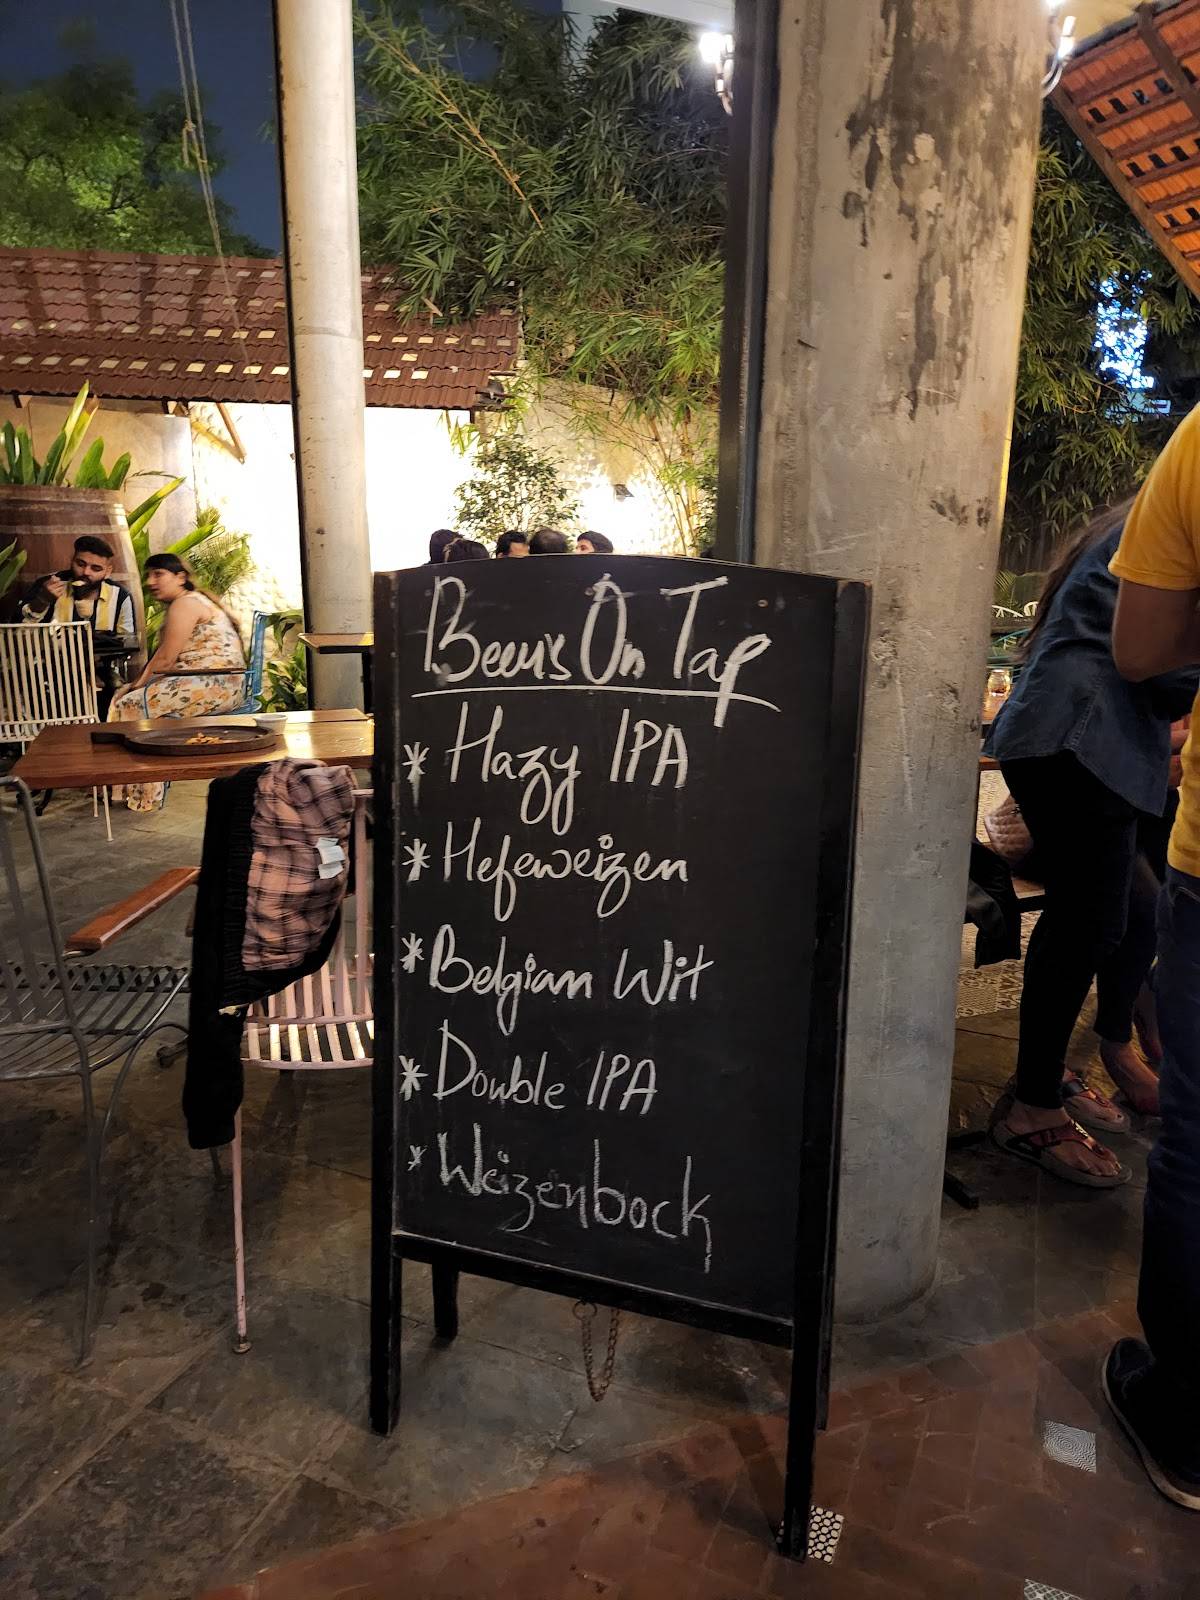 Beers On Tap
* Hazy IPA
* Hefeweizen
* Belgian Wit
* Double IPA
* Weizenbock